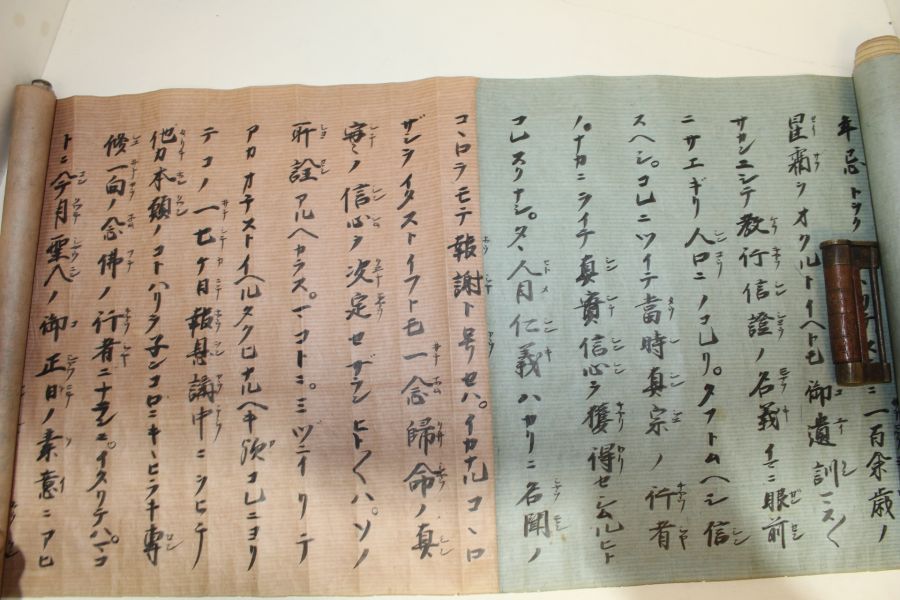 年忌トツク
ニ一百余歳ノ
星霜ヲオクルトイヘトモ御遺訓マス〱
サカンニシテ教行信證ノ名義イマニ眼前
ニサエギリ人口ニノコレリ。タフトムヘシ信
スヘシ。コレニツイテ當時真宗ノ行者
ノ。ナカニヲイテ真實信心ヲ獲得セシムルヒト
コレスクナシ。タヽ人目仁義ハカリニ名聞ノ
コヽロヲモテ報謝ト号セハ。イカナルコヽロ
ザシヲイタストイフトモ一念歸命ノ真
實ノ信心ヲ決定セザランヒト〱ハ。ソノ
所詮アルヘカラス。マコトニ。ミヅニイリテ
アカオチストイヘルタクヒナルヘキ歟コレニヨリ
テコノ一七ケ日報恩講中ニヲヒテ
他力本願ノコトハリヲ子ンコロニキヽヒラキ専
修一向ノ念佛ノ行者ニナランニ。イタリテハ。マコ
トニ今月聖人ノ御正日ノ素意ニアヒ